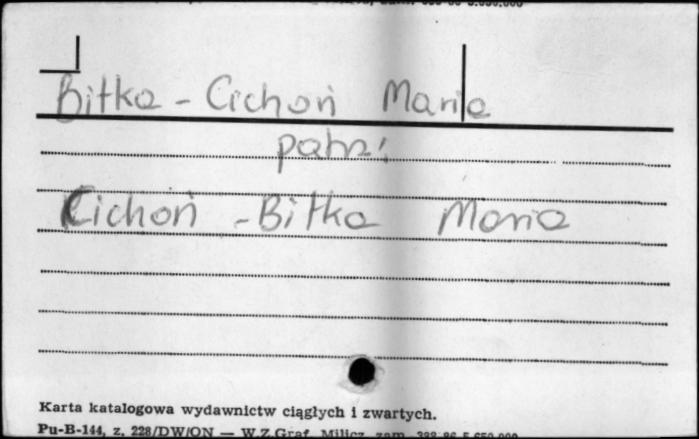 Bitka - Cichoń Maria
patrz:
Cichoń - Bitka Maria
Karta katalogowa wydawnictw ciągłych i zwartych.
Pu-B-144, z. 228/DW/ON — W.Z.Graf. Milicz, zam.